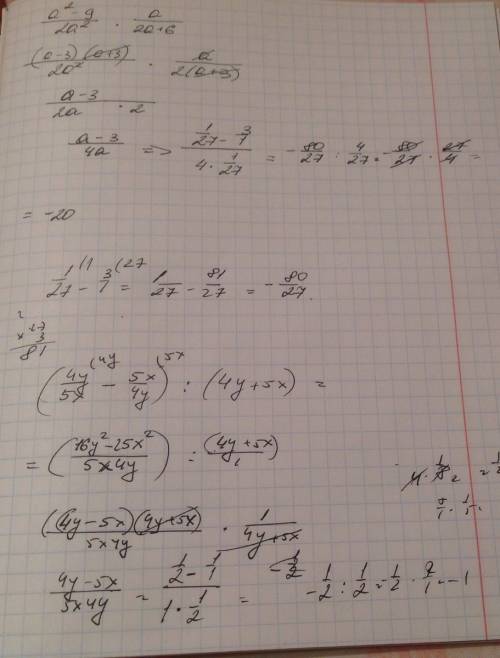 a² - 9 / 2a² · a / 2a+6
(a-3)(a+3) / 2a² · a / 2(a+3)
a-3 / 2a · 2
a-3 / 4a => 1/27 - 3/1 / 4 · 1/27 = - 80/27 : 4/27 = - 80/27 · 27/4 =
= -20
1/27 (1 - 3/1 (27 = 1/27 - 81/27 = - 80/27.
27
x 3
81
(4y/5x (4y - 5x/4y (5x) : (4y + 5x) =
= (16y² - 25x² / 5x4y) : (4y + 5x)/1
(4y - 5x)(4y + 5x) / 5x4y · 1 / 4y + 5x
4y - 5x / 5x4y = 1/2 - 1/1 / 1 · 1/2 = - 1/2 - 1/2 : 1/2 = - 1/2 · 2/1 = -1